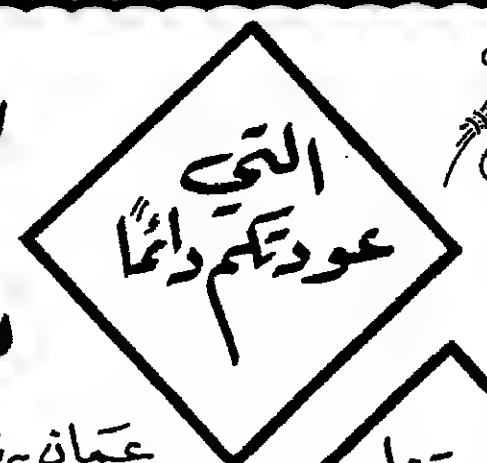 التي
عودتكم دائمًا
عمان